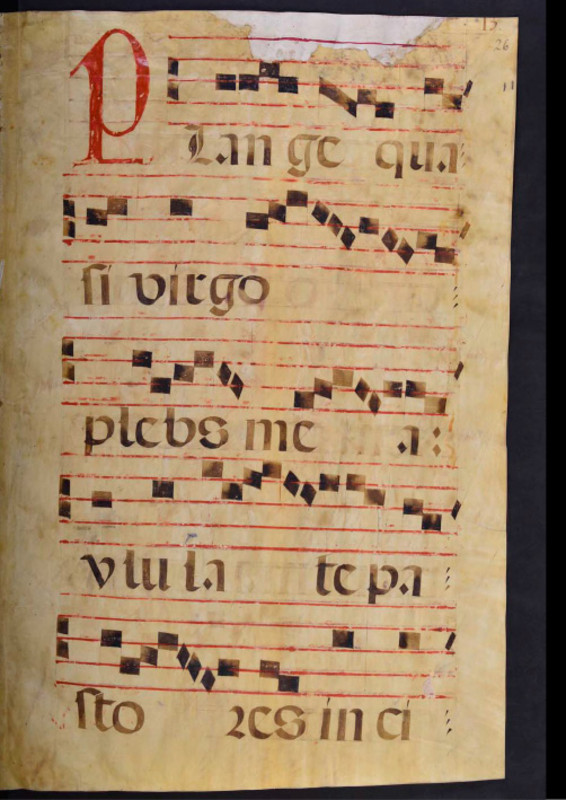 26
PLange qua
si virgo
plebs me a:
vlula te pa
sto res in ci